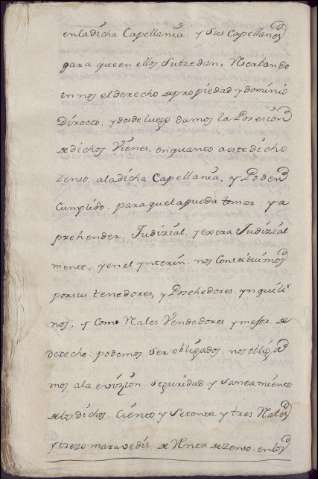 en la dicha Capellania y Sus Capellanos
para que en ellos Subzedan, Resando
en nos el derecho de propiedad y dominio
Directo, y desde luego damos la Posesion
de dichos Vienes, en quanto a este dicho
Zenso, a la dicha Capellania, y Poder
Cumplido para que la pueda tomar y a
prehender, Judizial, y extra Judizial
mente, y en el ynterin nos Constituimos
por sus tenedores, y Poshedores, ynquili
nos, y Como Reales Vendedores y mejor de
derecho podemos ser obligados nos oblig a
mos a la evizion seguridad y saneamiento
de los dichos, Ciento y Setenta y tres Reales
y treze maravedis de Renta de Zenso, en los